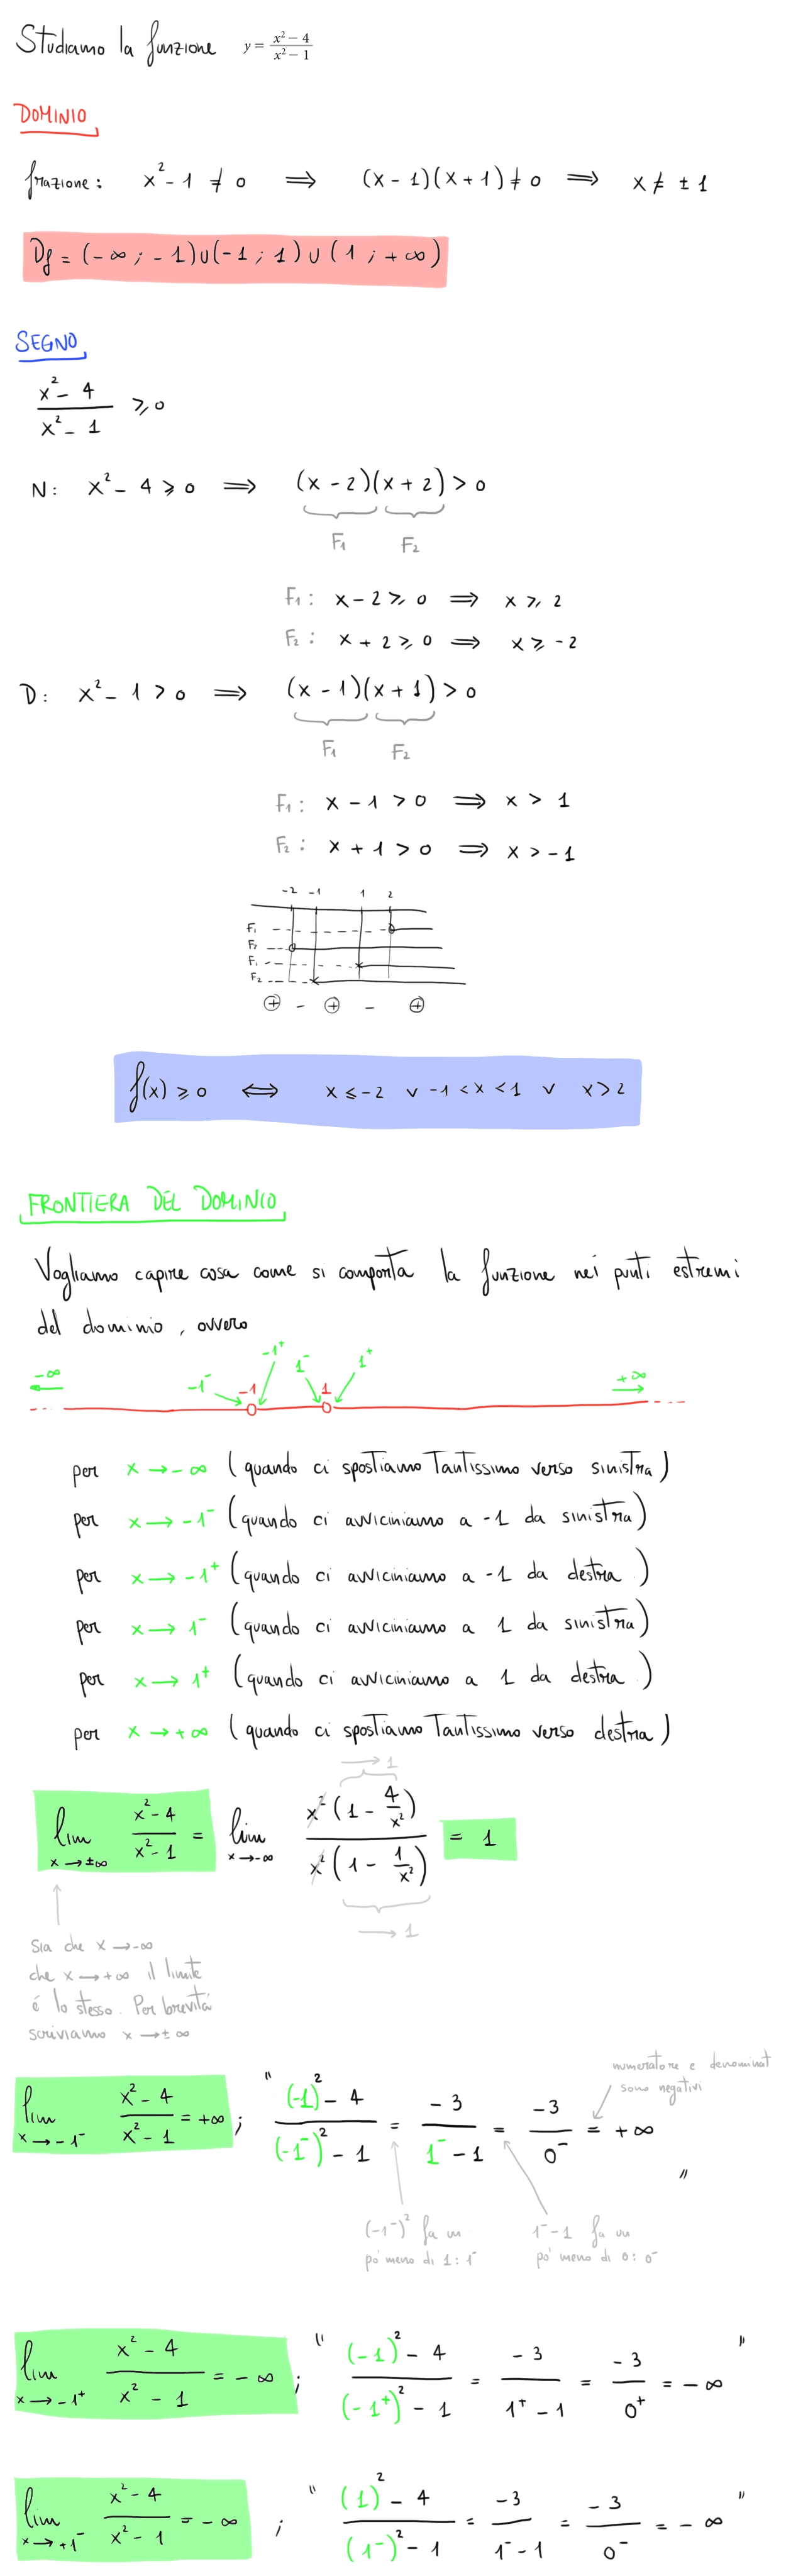 Studiamo la funzione y = \frac{x² - 4}{x² - 1}
DOMINIO
frazione: x² - 1 ≠ 0 ⟹ (x - 1)(x + 1) ≠ 0 ⟹ x ≠ ± 1
Df = (-∞ ; -1) ∪ (-1 ; 1) ∪ (1 ; +∞)
SEGNO
\frac{x² - 4}{x² - 1} ⩾ 0
N: x² - 4 ⩾ 0 ⟹ (x - 2)(x + 2) > 0
F₁ F₂
F₁: x - 2 ⩾ 0 ⟹ x ⩾ 2
F₂: x + 2 ⩾ 0 ⟹ x ⩾ -2
D: x² - 1 > 0 ⟹ (x - 1)(x + 1) > 0
F₁ F₂
F₁: x - 1 > 0 ⟹ x > 1
F₂: x + 1 > 0 ⟹ x > -1
-2 -1 1 2
F₁
F₂
F₁
F₂
⊕ - ⊕ - ⊕
f(x) ⩾ 0 ⟺ x ⩽ -2 ∨ -1 < x < 1 ∨ x > 2
FRONTIERA DEL DOMINIO
Vogliamo capire cosa come si comporta la funzione nei punti estremi
del dominio, ovvero
-∞ -1⁻ -1 -1⁺ 1⁻ 1 1⁺ +∞
per x → -∞ (quando ci spostiamo tantissimo verso sinistra)
per x → -1⁻ (quando ci avviciniamo a -1 da sinistra)
per x → -1⁺ (quando ci avviciniamo a -1 da destra)
per x → 1⁻ (quando ci avviciniamo a 1 da sinistra)
per x → 1⁺ (quando ci avviciniamo a 1 da destra)
per x → +∞ (quando ci spostiamo tantissimo verso destra)
→ 1
lim x → ±∞ \frac{x² - 4}{x² - 1} = lim x → -∞ \frac{x² (1 - \frac{4}{x²})}{x² (1 - \frac{1}{x²})} = 1
→ 1
Sia che x → -∞
che x → +∞ il limite
é lo stesso. Per brevità
scriviamo x → ± ∞
numeratore e denominat
sono negativi
lim x → -1⁻ \frac{x² - 4}{x² - 1} = +∞ ; " \frac{(-1)² - 4}{(-1⁻)² - 1} = \frac{-3}{1⁻ - 1} = \frac{-3}{0⁻} = +∞ "
(-1⁻)² fa un
po' meno di 1: 1⁻
1⁻ - 1 fa un
po' meno di 0: 0⁻
lim x → -1⁺ \frac{x² - 4}{x² - 1} = -∞ ; " \frac{(-1)² - 4}{(-1⁺)² - 1} = \frac{-3}{1⁺ - 1} = \frac{-3}{0⁺} = -∞ "
lim x → +1⁻ \frac{x² - 4}{x² - 1} = -∞ ; " \frac{(1)² - 4}{(1⁻)² - 1} = \frac{-3}{1⁻ - 1} = \frac{-3}{0⁻} = -∞ "